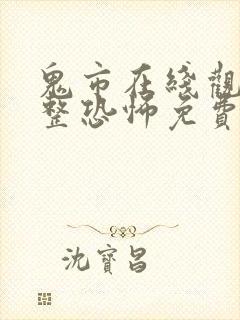 鬼市在綫觀
整恐怖免費
沈寶昌